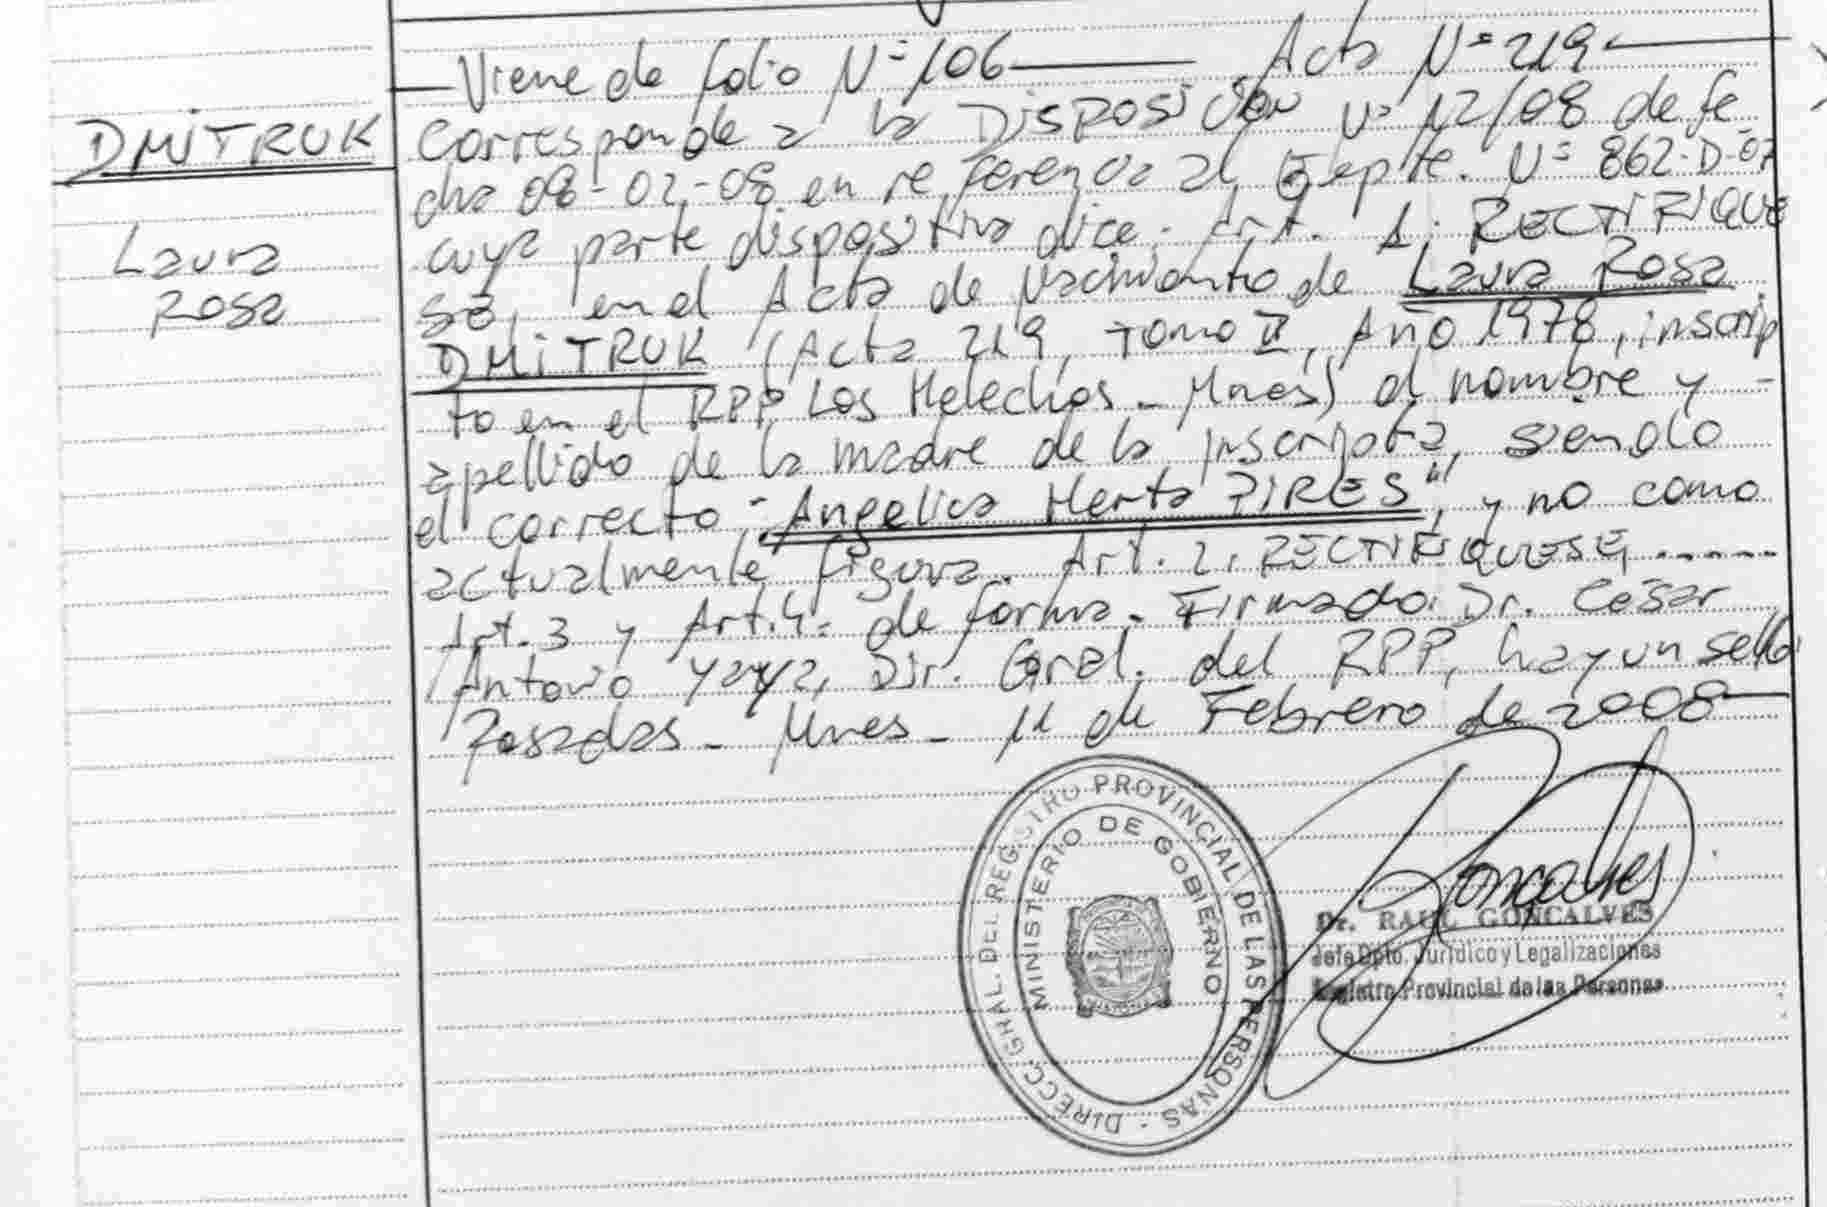 Viene de folio N=106 Acta N=219
DMiTRUK
Laura
Rosa
corresponde a la DISPOSICION N= 12/08 de fe
cha 08-02-08 en referencia al Expte. N= 862-D-07
cuya parte dispositiva dice: Art. 1: RECTIFIQUE
SE, en el Acta de Nacimiento de Laura Rosa
DMiTRUK (Acta 219, Tomo II, Año 1978, inscrip
to en el RPP Los Helechos - Mnes) el nombre y -
apellido de la madre de la inscripta, siendo
el correcto "Angelica Herta PIRES", y no como
actualmente figura. Art. 2: RECTIFIQUESE, ......
Art. 3 y Art. 4: de forma. Firmado: Dr. Cesar
Antonio Yaya, Dir. Gral. del RPP, hay un sello
Posadas - Mnes - 11 de Febrero de 2008
DIRECC. GRAL. DEL REGISTRO PROVINCIAL DE LAS PERSONAS
MINISTERIO DE GOBIERNO
Gonçalves
Dr. RAUL GONCALVES
Jefe Dpto. Jurídico y Legalizaciones
Registro Provincial de las Personas